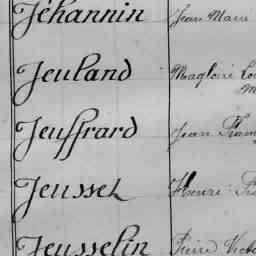 Jéhannin Jean Marie
Jeuland Magloire
Jeuffrard Jean
Jeusset Henri
Jeusselin Pierre